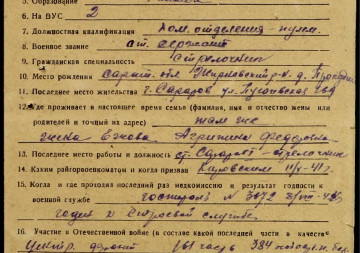 5. Образование
6. На ВУС 2
7. Должностная квалификация Ком. отделения - пулем.
8. Военное звание ст. сержант
9. Гражданская специальность стрелочник
10. Место рождения Сарат. обл
11. Последнее место жительства г. Саратов ул.
12. Где проживает в настоящее время семья (фамилия, имя и отчество жены или
родителей и точный их адрес) там же
жена Ежова Агрипина Федоровна
13. Последнее место работы и должность ст. Саратов - стрелочник
14. Каким райгорвоенкоматом и когда призван Кировским
15. Когда и где проходил последний раз медкомиссию и результат годности к
военной службе госпиталь № 3072
годен к строевой службе
16. Участие в Отечественной войне (в составе какой последней части в качестве
Центр. фронт